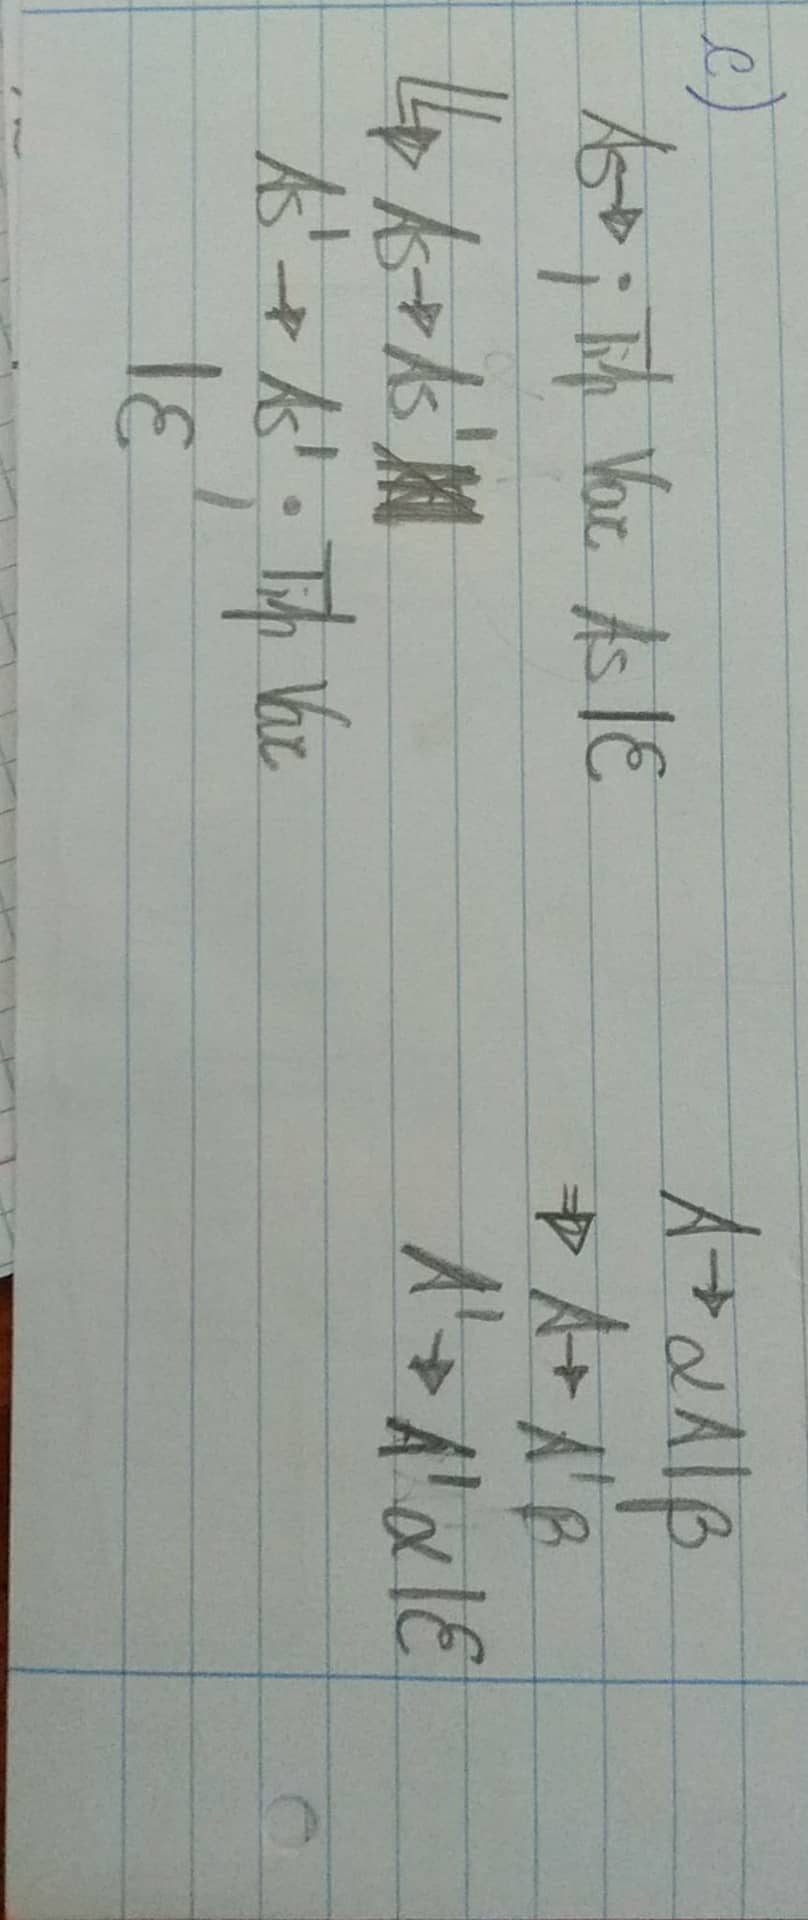 c)
As → ; Tip Var As | ε
As → As'
As' → As' ; Tip Var
| ε
A → αA | β
⇒ A → A'β
A' → A'α | ε